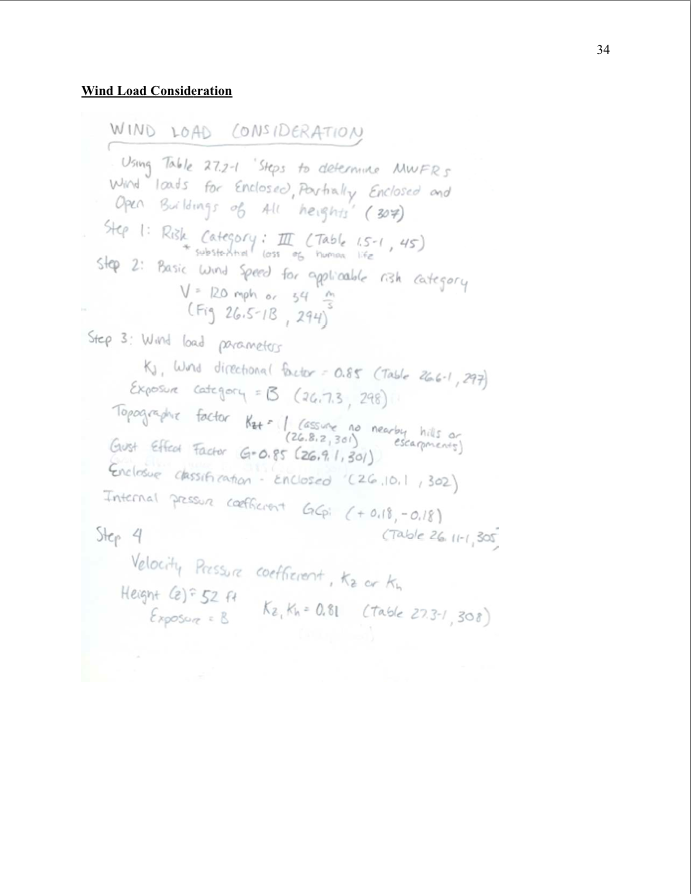 34
Wind Load Consideration
WIND LOAD CONSIDERATION
Using Table 27.2-1 'Steps to determine MWFRS
Wind loads for Enclosed, Partially Enclosed and
Open Buildings of All heights' (307)
Step 1: Risk Category: III (Table 1.5-1, 45)
* substantial loss of human life
Step 2: Basic Wind Speed for applicable risk category
V = 120 mph or 54 m/s
(Fig 26.5-1B, 294)
Step 3: Wind load parameters
Kd, Wind directional factor = 0.85 (Table 26.6-1, 297)
Exposure category = B (26.7.3, 298)
Topographic factor Kzt = 1 (assume no nearby hills or
(26.8.2, 301) escarpments)
Gust Effect Factor G=0.85 (26.9.1, 301)
Enclosure classification - Enclosed (26.10.1, 302)
Internal pressure coefficient GCpi (+0.18, -0.18)
(Table 26.11-1, 305)
Step 4
Velocity Pressure coefficient, Kz or Kh
Height (z) = 52 ft
Exposure = B Kz, Kh = 0.81 (Table 27.3-1, 308)